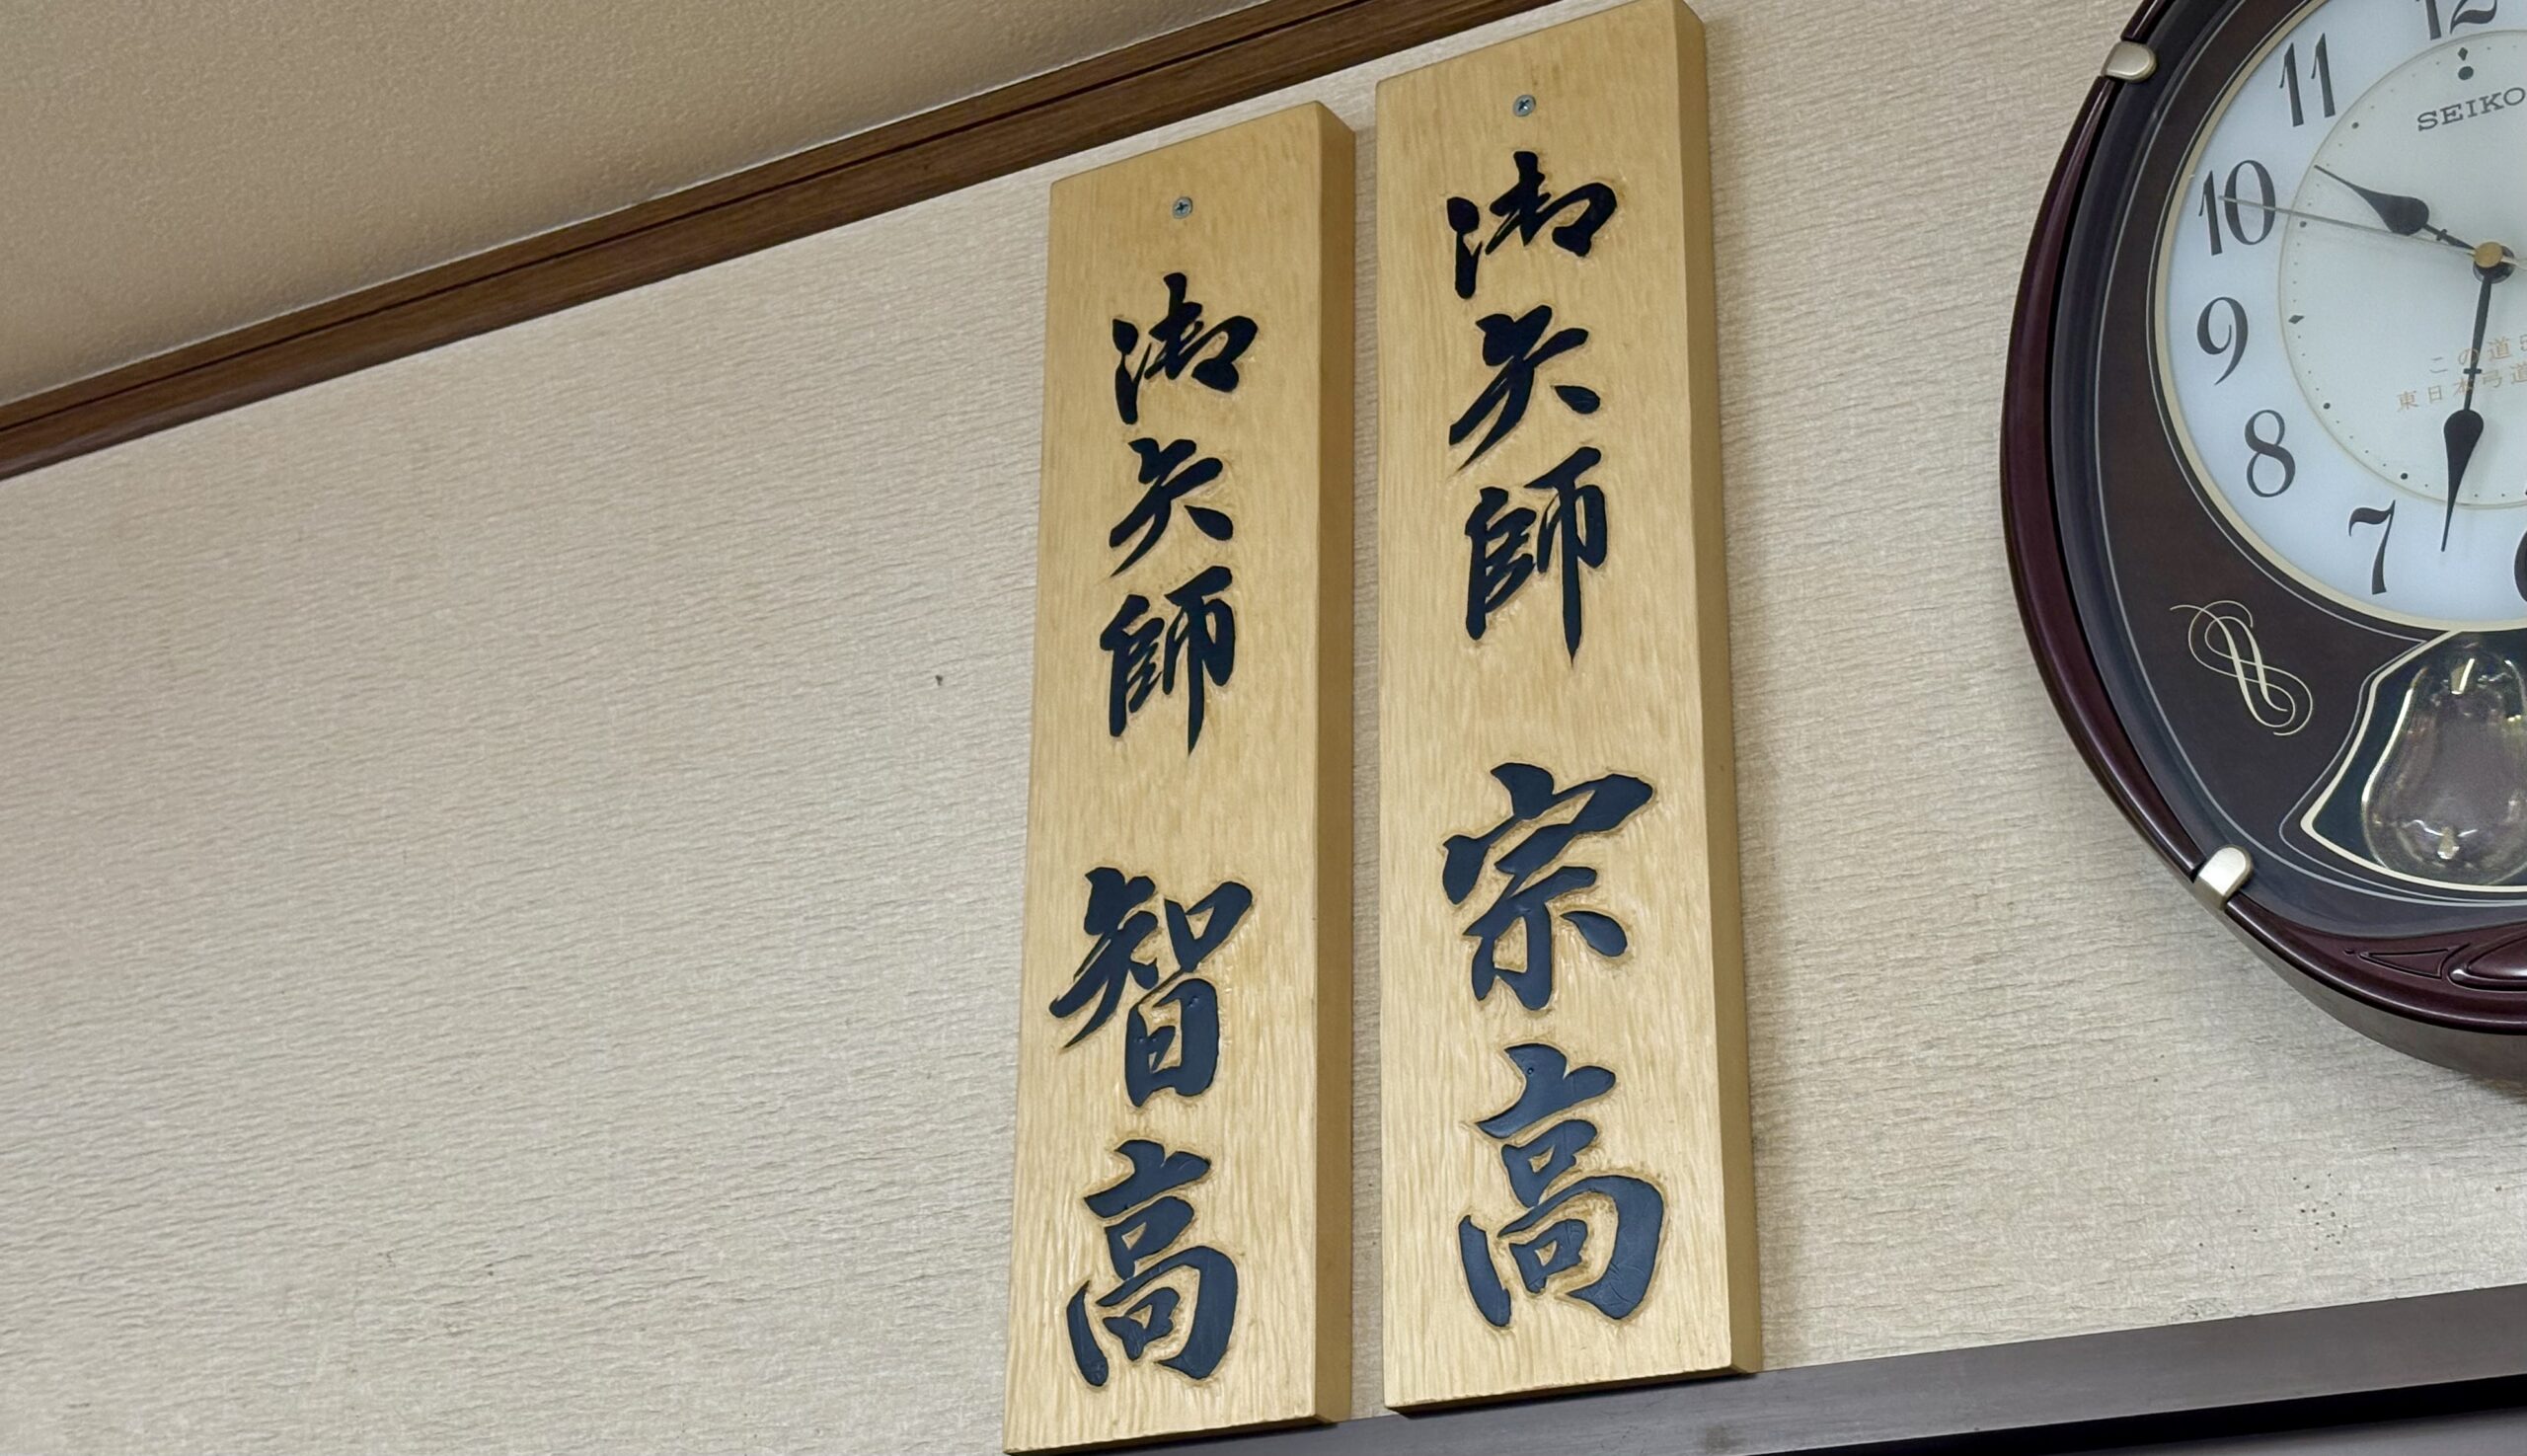 御矢師 宗高
御矢師 智高
12
11
10
9
8
7
SEIKO
この道
東日本弓道